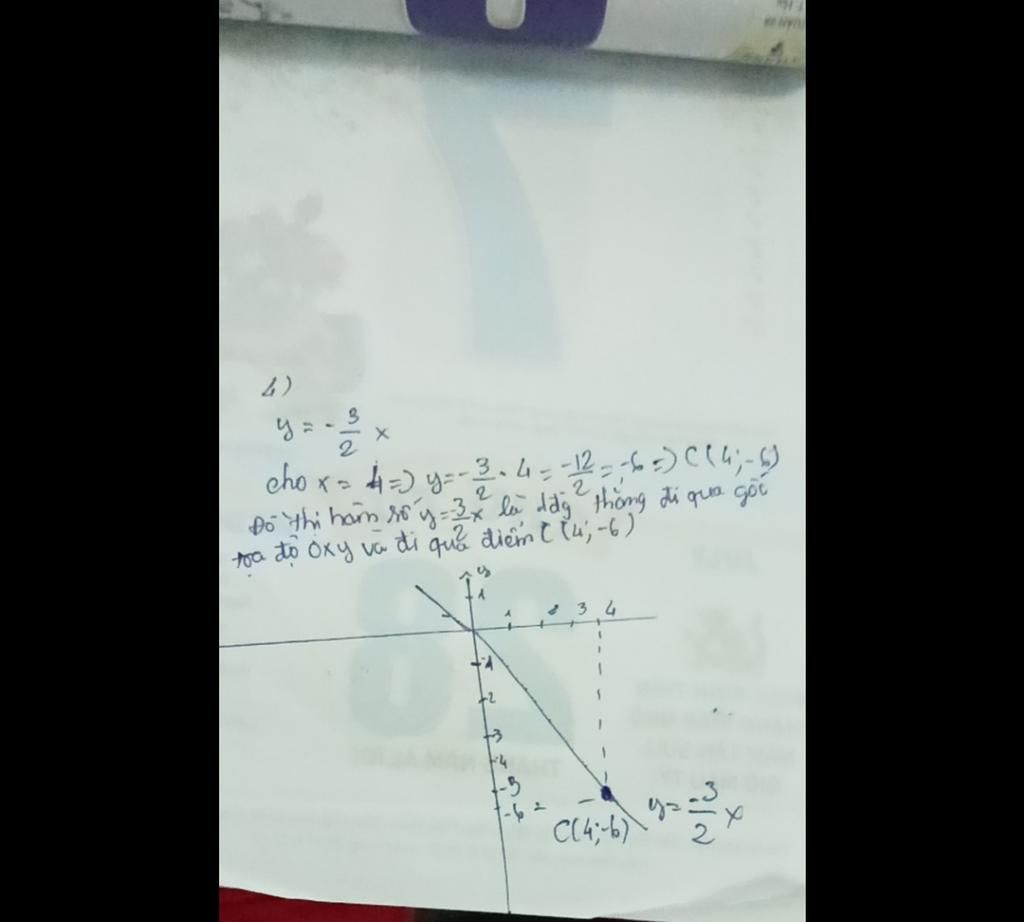 4)
y = -3/2 x
cho x = 4 => y = -3/2 . 4 = -12/2 = -6 => C(4; -6)
Đồ thị hàm số y = -3/2 x là thẳng đi qua gốc
tọa độ Oxy và đi qua điểm C(4; -6)
y
1
1 2 3 4
-1
-2
-3
-4
-5
-6
C(4; -6)
y = -3/2 x